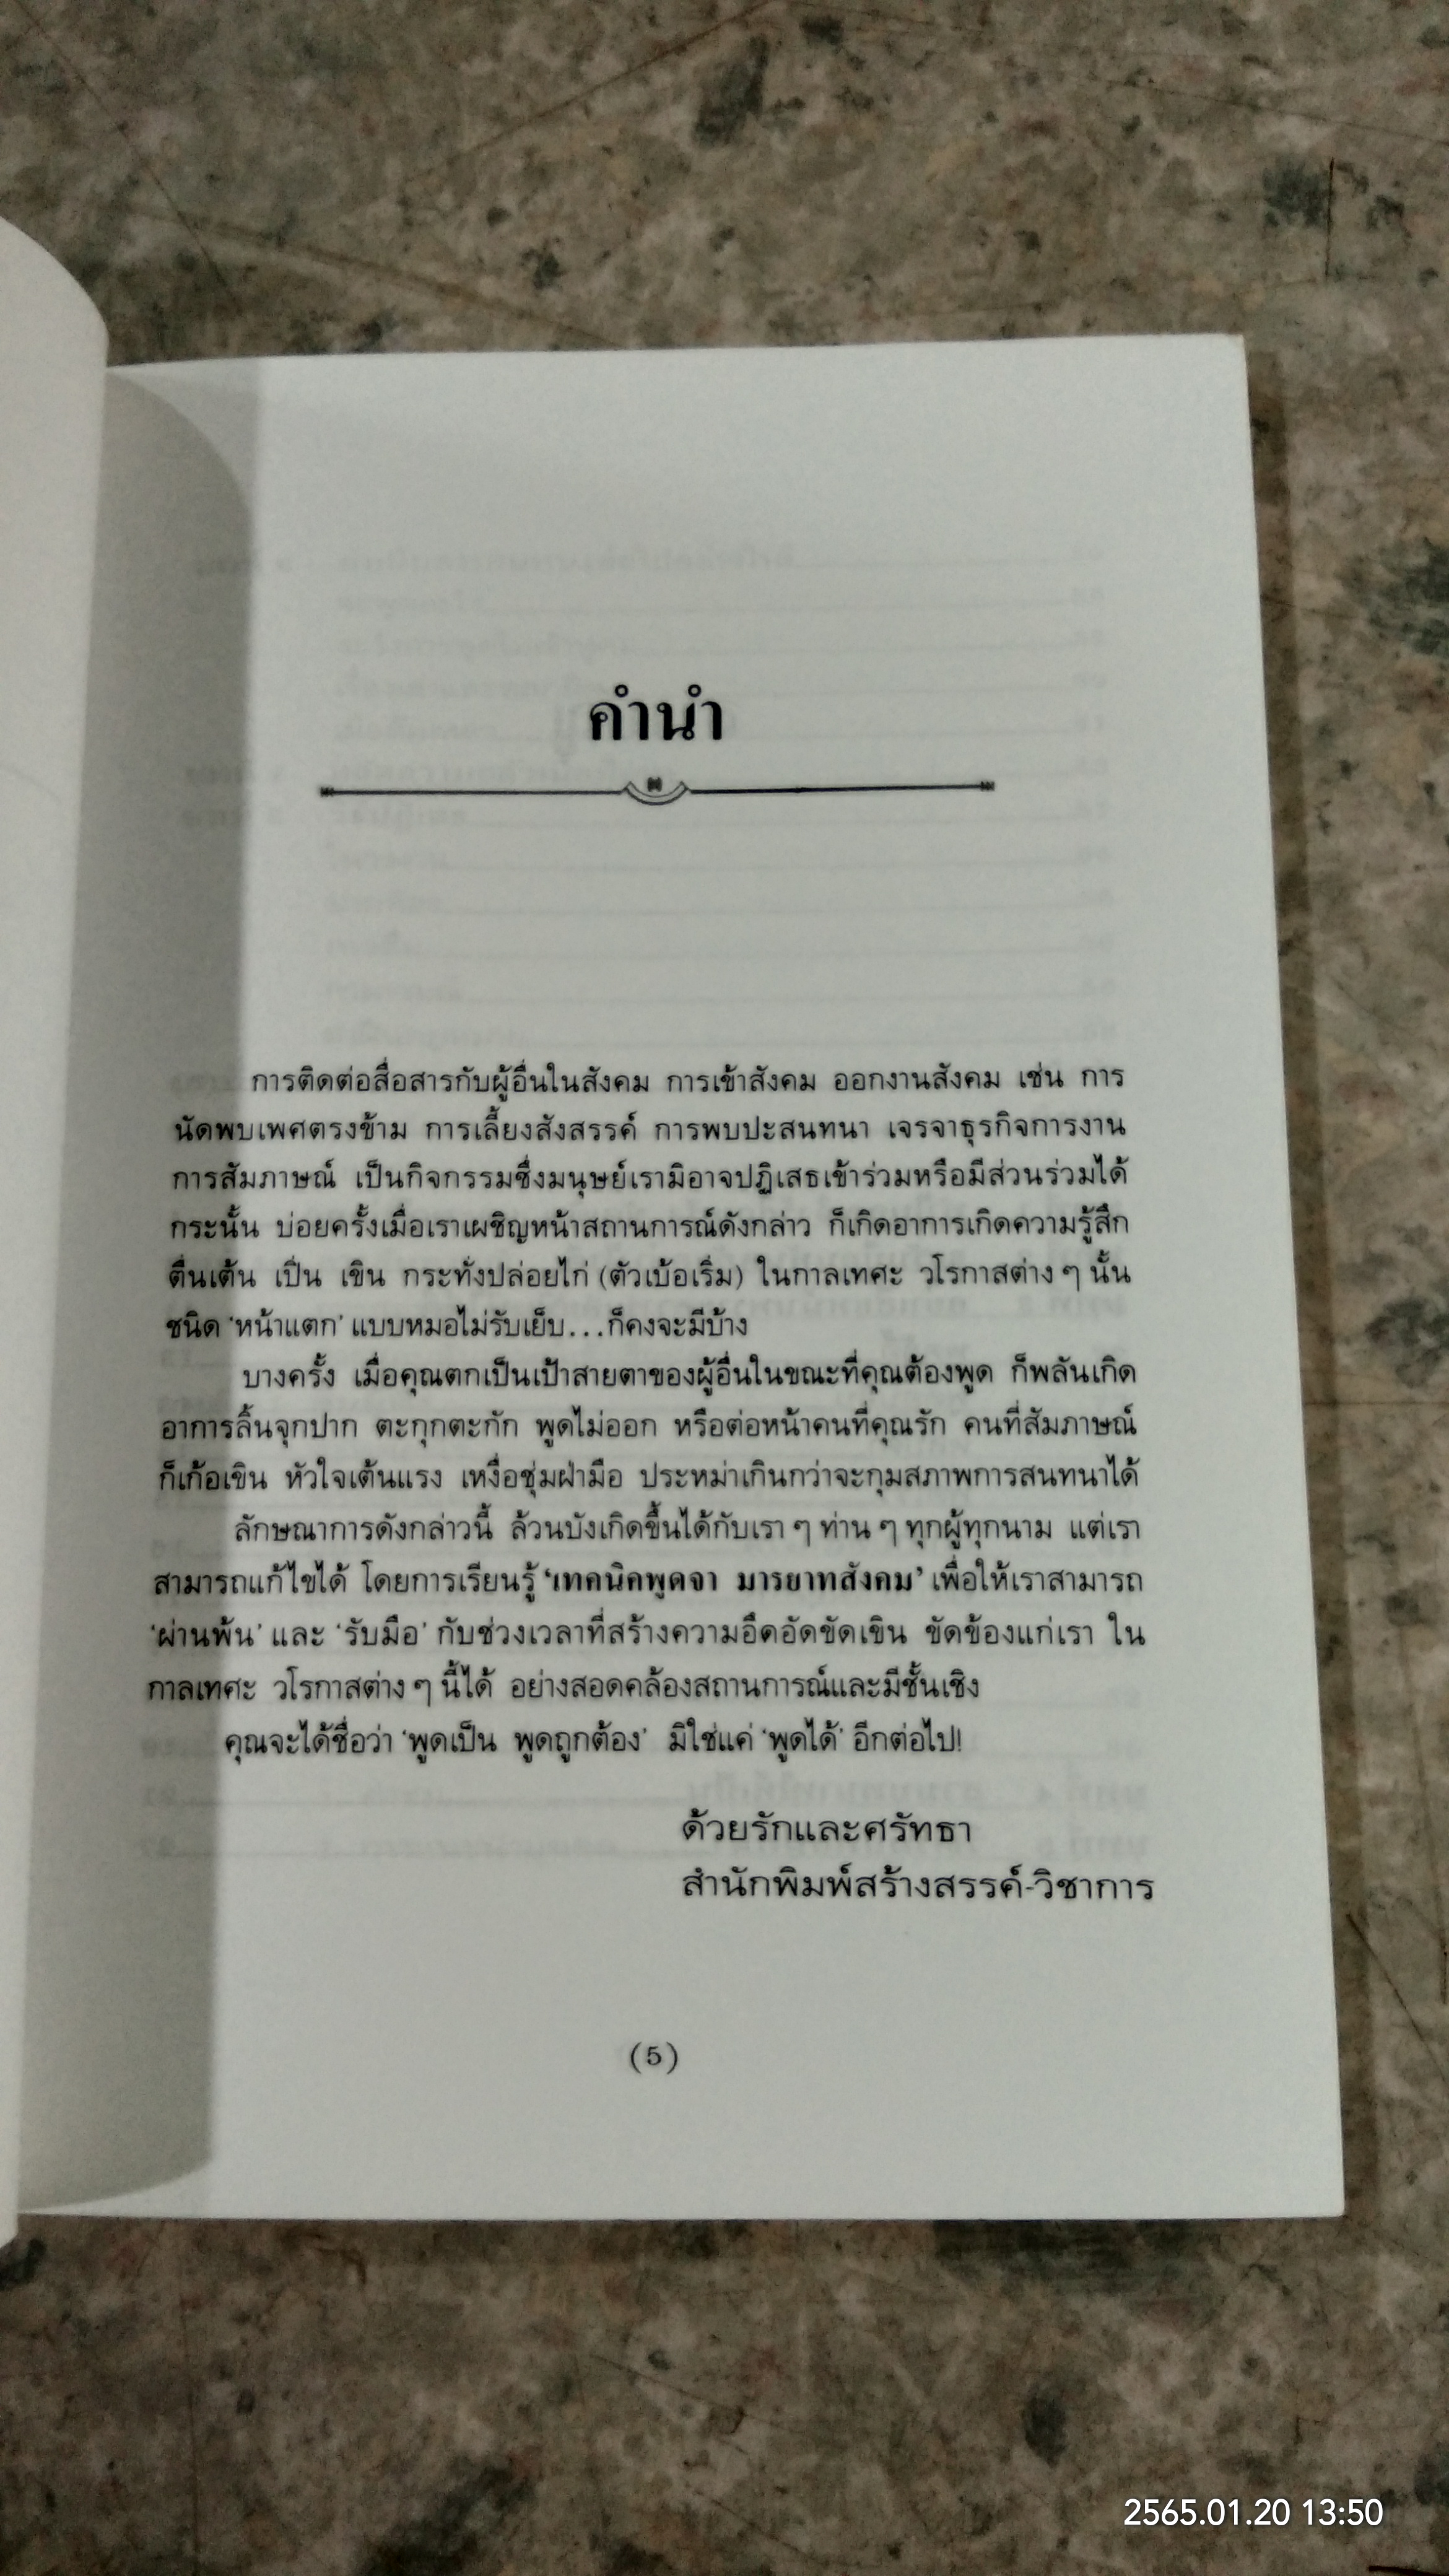 คำนำ
การติดต่อสื่อสารกับผู้อื่นในสังคม การเข้าสังคม ออกงานสังคม เช่น การ
นัดพบเพศตรงข้าม การเลี้ยงสังสรรค์ การพบปะสนทนา เจรจาธุรกิจการงาน
การสัมภาษณ์ เป็นกิจกรรมซึ่งมนุษย์เรามิอาจปฏิเสธเข้าร่วมหรือมีส่วนร่วมได้
กระนั้น บ่อยครั้งเมื่อเราเผชิญหน้าสถานการณ์ดังกล่าว ก็เกิดอาการเกิดความรู้สึก
ตื่นเต้น เปิ่น เขิน กระทั่งปล่อยไก่ (ตัวเบ้อเริ่ม) ในกาลเทศะ วโรกาสต่าง ๆ นั้น
ชนิด 'หน้าแตก' แบบหมอไม่รับเย็บ...ก็คงจะมีบ้าง
บางครั้ง เมื่อคุณตกเป็นเป้าสายตาของผู้อื่นในขณะที่คุณต้องพูด ก็พลันเกิด
อาการลิ้นจุกปาก ตะกุกตะกัก พูดไม่ออก หรือต่อหน้าคนที่คุณรัก คนที่สัมภาษณ์
ก็เก้อเขิน หัวใจเต้นแรง เหงื่อชุ่มฝ่ามือ ประหม่าเกินกว่าจะกุมสภาพการสนทนาได้
ลักษณาการดังกล่าวนี้ ล้วนบังเกิดขึ้นได้กับเรา ๆ ท่าน ๆ ทุกผู้ทุกนาม แต่เรา
สามารถแก้ไขได้ โดยการเรียนรู้ 'เทคนิคพูดจา มารยาทสังคม' เพื่อให้เราสามารถ
'ผ่านพ้น' และ 'รับมือ' กับช่วงเวลาที่สร้างความอึดอัดขัดเขิน ขัดข้องแก่เรา ใน
กาลเทศะ วโรกาสต่าง ๆ นี้ได้ อย่างสอดคล้องสถานการณ์และมีชั้นเชิง
คุณจะได้ชื่อว่า 'พูดเป็น พูดถูกต้อง' มิใช่แค่ 'พูดได้' อีกต่อไป!
ด้วยรักและศรัทธา
สำนักพิมพ์สร้างสรรค์-วิชาการ
(5)
2565.01.20 13:50